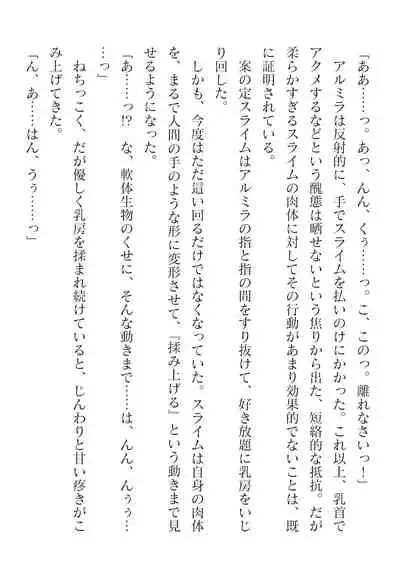 「ああ……っ。あっ、んん、くぅ……っ。こ、このっ。離れなさいっ！」
　アルミラは反射的に、手でスライムを払いのけにかかった。これ以上、乳首で
アクメするなどという醜態は晒せないという焦りから出た、短絡的な抵抗。だが
柔らかすぎるスライムの肉体に対してその行動があまり効果的でないことは、既
に証明されている。
　案の定スライムはアルミラの指と指の間をすり抜けて、好き放題に乳房をいじ
り回した。
　しかも、今度はただ這い回るだけではなくなっていた。スライムは自身の肉体
を、まるで人間の手のような形に変形させて、『揉み上げる』という動きまで見
せるようになった。
「あ……っ!?　な、軟体生物のくせに、そんな動きまで……は、んん、んぅぅ…
…っ」
　ねちっこく、だが優しく乳房を揉まれ続けていると、じんわりと甘い疼きがこ
み上げてきた。
「ん、あ……はん、うぅ……っ」